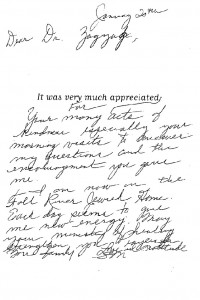 January 20
Dear Dr. Zazyage,
It was very much appreciated,
For
Your many acts of
kindness especially your
morning visits to answer
my questions and the
encouragement you gave
me.
I am now in the
Fall River Jewish Home.
Each day seems to give
me new energy. May
your ministry of healing
strengthen you
your family
gratitude